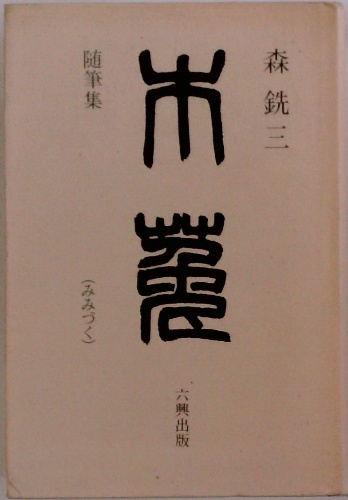 森 銑三
木菟
随筆集
(みみづく)
六興出版